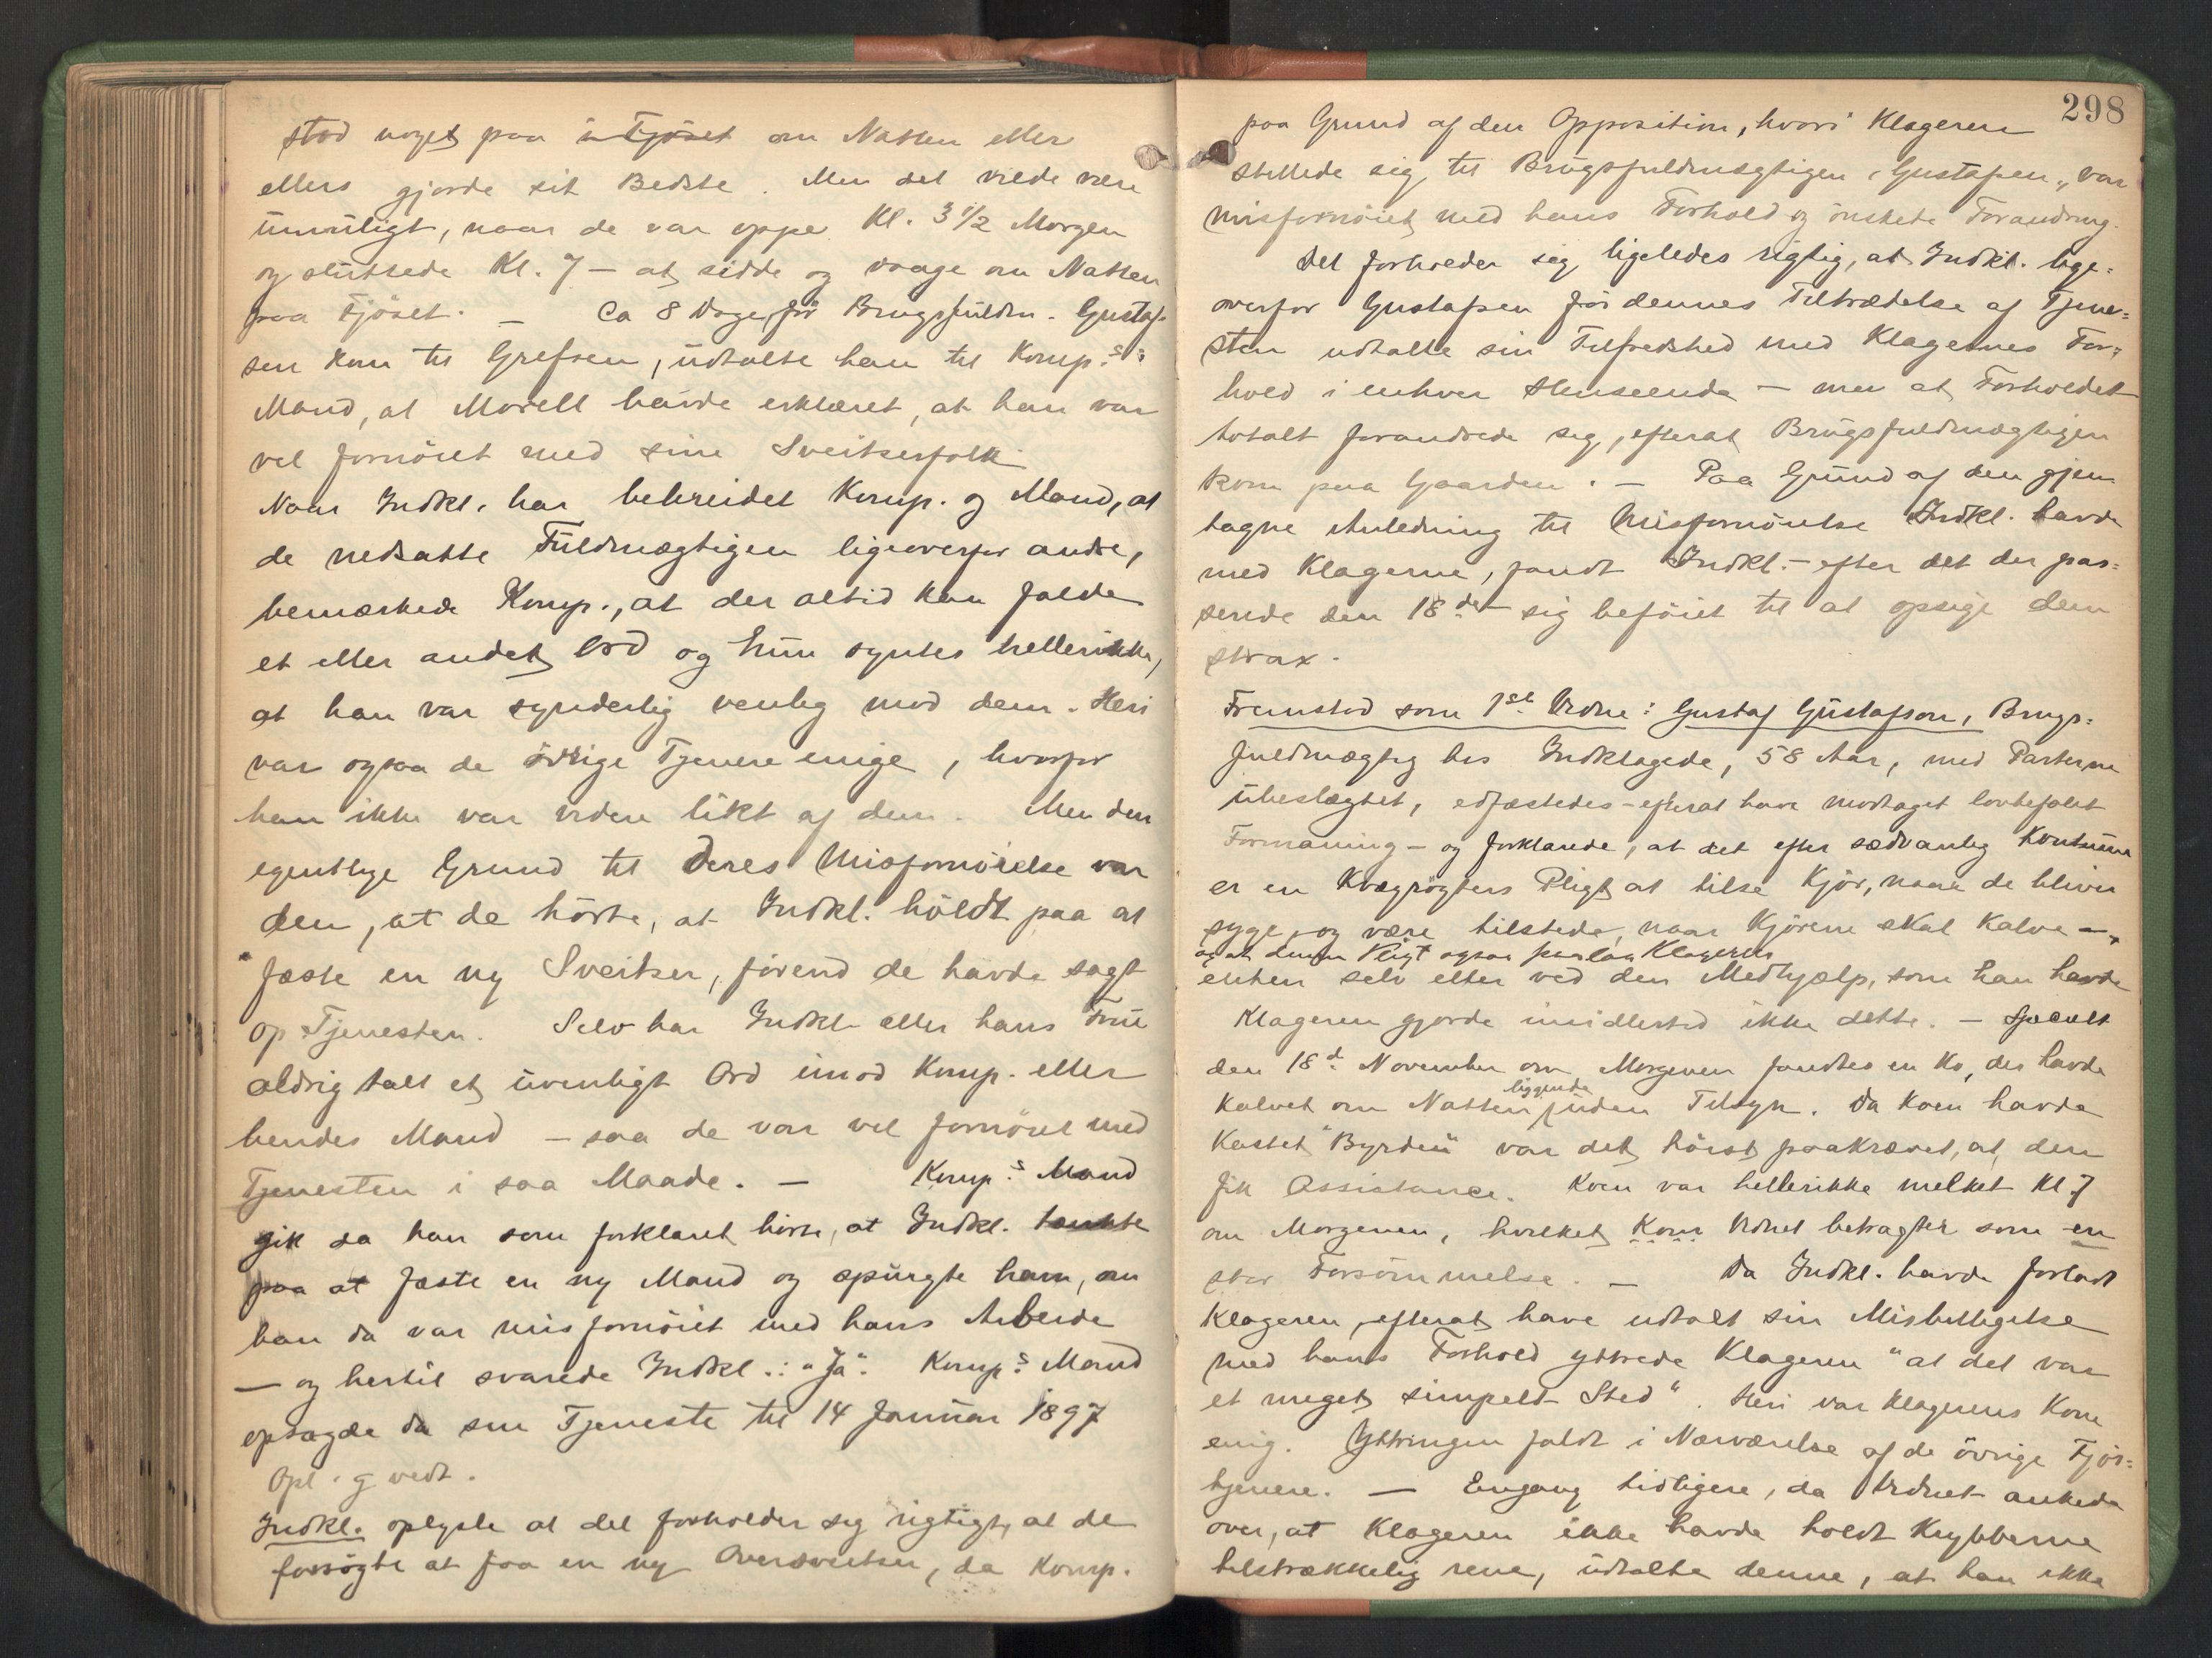 stod noget paa i Fjöset om Natten eller
ellers gjorde sit Bedste. Men det vilde være
umuligt, naar de var oppe Kl. 3 1/2 Morgen
og sluttede Kl. 7 – at sidde og vaage om Natten
paa Fjöset. – Ca 8 Dage för Brugsfuldm. Gustaf-
sen kom til Grefsen, udtalte han til Komp.s
Mand, at Morell havde erklæret, at han var
vel fornöiet med sine Sveitserfolk
Naar Indkl. har bebreidet Komp. og Mand, at
de nedsatte Fuldmægtigen ligeoverfor andre,
bemærkede Komp., at der altid kan falde
et eller andet Ord og hun syntes hellerikke,
at han var synderlig venlig mod dem. Heri
var ogsaa de övrige Tjenere enige, hvorfor
han ikke var videre likt af dem. Men den
egentlige Grund til deres Misfornöielse var
den, at de hörte, at Indkl. höldt paa at
fæste en ny Sveitser, förend de havde sagt
op Tjenesten. Selv har Indkl. eller hans Frue
aldrig talt et uvenligt Ord imod Komp. eller
hendes Mand – saa de var vel fornöiet med
Tjenesten i saa Maade. – Komp.s Mand
gik da han som forklaret hörte, at Indkl. tænkte
paa at fæste en ny Mand og spurgte ham, om
han da var misfornöiet med hans Arbeide
– og hertil svarede Indkl.: "Ja". Komp.s Mand
opsagde da sin Tjeneste til 14 Januar 1897
Opl. g vedt.
Indkl. oplyste at det forholder sig rigtigt, at de
forsögte at faa en ny Oversveitser, da Komp.
298
paa Grund af den Opposition, hvori Klageren
stillede sig til Brugsfuldmægtigen, Gustafsen, var
misfornöiet med hans Forhold og önskede Forandring.
Det forholder sig ligeledes rigtig, at Indkl. lige-
overfor Gustafsen för dennes Tiltrædelse af Tjene-
sten udtalte sin Tilfredshed med Klagernes For-
hold i enhver Henseende – men at Forholdet
totalt forandrede sig, efterat Brugsfuldmægtigen
kom paa Gaarden. – Paa Grund af den gjen-
tagne Anledning til Misfornöielse Indkl. havde
med Klagerne, fandt Indkl. – efter det der pas-
serede den 18de – sig beföiet til at opsige dem
strax.
Fremstod som 1ste Vidne: Gustaf Gustafson, Brugs-
fuldmægtig hos Indklagede, 58 Aar, med Parterne
ubeslægtet, edfæstedes – efterat have modtaget lovbefalet
Formaning – og forklarede, at det efter sædvanlig Kontume
er en Kvægrögters Pligt at tilse Kjör, naar de bliver
syge, og være tilstede, naar Kjörene skal kalve –,
og at denne Pligt ogsaa paalaa Klageren
enten selv eller ved den Medhjælp, som han havde
Klageren gjorde imidlertid ikke dette. – Specielt
den 18d. November om Morgenen fandtes en Ko, der havde
liggende
kalvet om Natten uden Tilsyn. Da Koen havde
kastet "Byrden" var det höist paakrævet, at den
fik Assistance. Koen var hellerikke melket Kl. 7
om Morgenen, hvilket Kom Vidnet betragter som en
stor Forsömmelse. – Da Indkl. havde forladt
Klageren, efterat have udtalt sin Misbilligelse
med hans Forhold yttrede Klageren "at det var
et meget simpelt Sted". Heri var Klagerens Kone
enig. Yttringen faldt i Nærværelse af de övrige Fjös-
tjenere. – Engang tidligere, da Vidnet ankede
over, at Klageren ikke havde holdt Krybberne
tilstrækkelig rene, udtalte denne, at han ikke